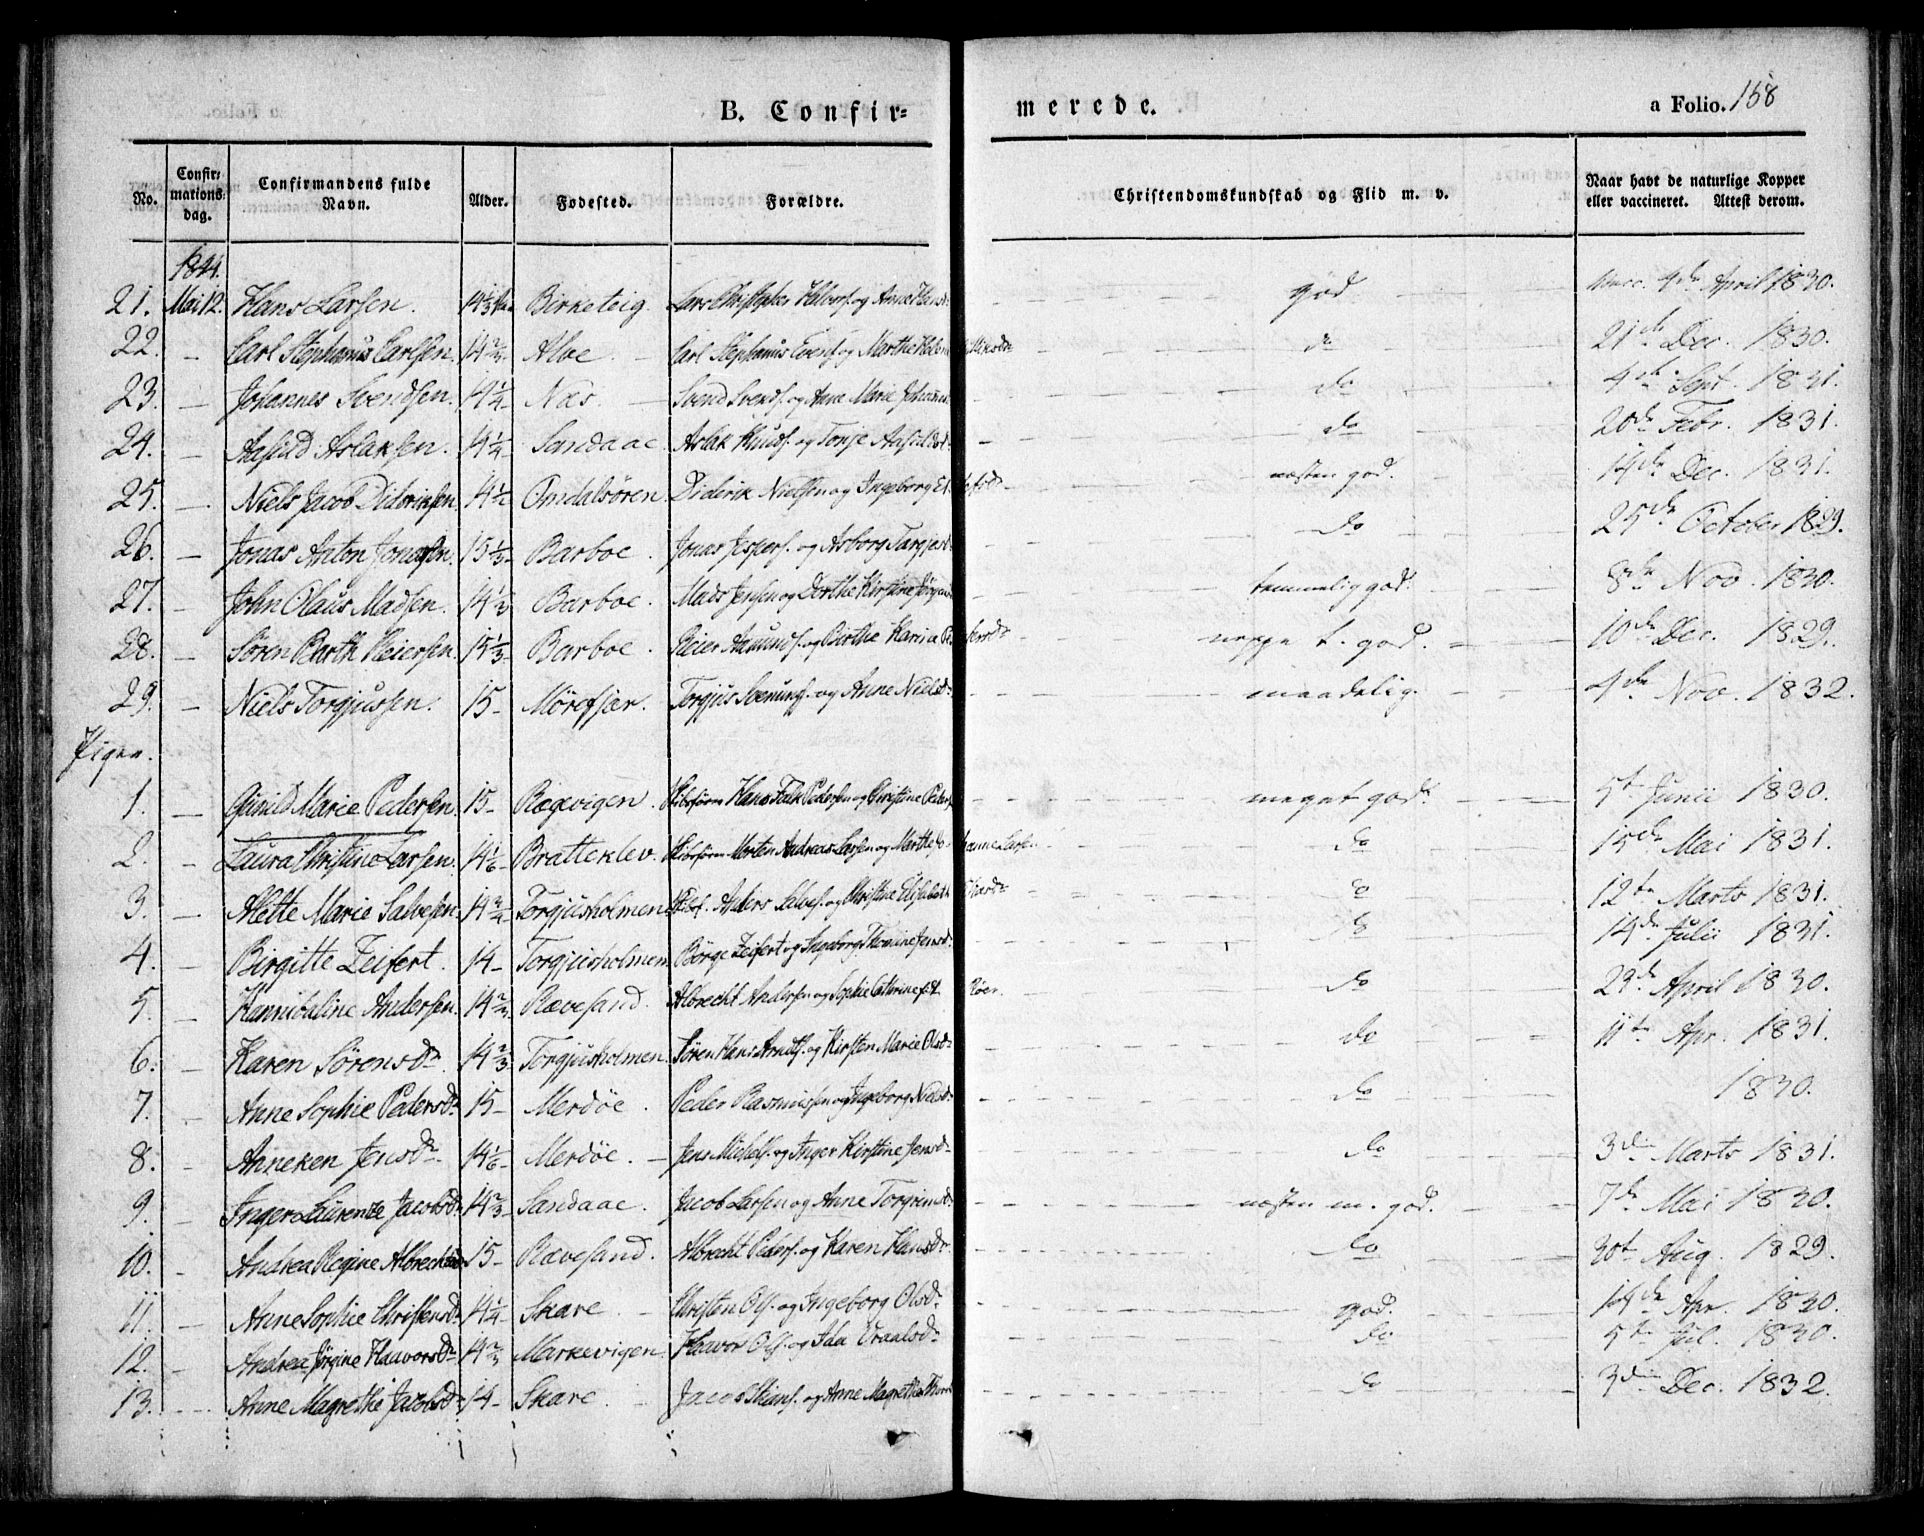 B. Confir=
merede.
a Folio. 158
No.
Confir=
mations=
dag.
Confirmandens fulde
Navn.
Alder.
Fødested.
Forældre.
Christendomskundskab og Flid m. v.
Naar havt de naturlige Kopper
eller vaccineret. Attest derom.
1844.
21. Mai 12. Hans Larsen. 14 1/3 Birketeig. og Anne Hansd. god vacc. 4de April 1830.
22. — Carl Stephanus Carlsen. 14 2/4 Alve. Carl Stephanus Evens. og Marthe Helene do 21de Dec. 1830.
23. — Johannes Svendsen. 14 1/4 Næs. Svend Svends. og Anne Marie do 4de Sept. 1831.
24. — Aslaksen. 14 1/4 Sandaae Aslak Knuds. og Tonje do 20de Febr. 1831.
25. — Niels Jacob Didriksen 14 1/2 Omdalsøren. Diderik Nielsen og Ingeborg næsten god. 14de Dec. 1831.
26. — Jonas Anton Jonassen. 15 1/3 Barboe. Jonas Jespers. og Asborg do 25de October 1829.
27. — John Olaus Madsen. 14 1/3 Barboe. Mads Jensen og Dorthe Kirstine temmelig god. 8de Nov. 1830.
28. — Søren Barth Reiersen. 15 1/3 Barboe. Reier Aamunds. og Birthe Karine neppe t. god. 10de Dec. 1829.
29. — Niels Torgjussen. 15 Mørefjær. Torgjus og Anne Nielsd. maadelig. 4de Nov. 1832.
Piger.
1. Gunild Marie Pedersen 15 Rægevigen. Skibsfører Hans Falk Pedersen og Christine Peders meget god. 5te Junii 1830.
2. — Laura Christine Larsen. 14 1/6 Bratteklev. Skibsfører Morten Andreas Larsen og Marthe Larsen do 15de Mai 1831.
3. — Alette Marie Salvesen 14 2/4 Torgjusholmen Anders Salves. og Christine Elisabeth do 12te Marts 1831.
4. — Birgitte Zeifert. 14 Torgjusholmen Børge Zeifert og Ingeborg Thomine Jensd. do 14de Julii 1831.
5. — Hannibaline Andersen. 14 2/3 Rævesand. Albrecht Andersen og Sophie Cathrine do 23de April 1830.
6. — Karen Sørensdr. 14 2/3 Torgjusholmen. Søren Hans Arnts. og Kirsten Marie Olsdr. do 11te Apr. 1831.
7. — Anne Sophie Pedersdr. 15 Merdøe. Peder Rasmussen og Ingeborg Nielsd. do 1830.
8. — Anneken Jensdr. 14 1/6 Merdøe. Jens Michels. og Inger Kirstine Jensd. do 3die Marts 1831.
9. — Inger Laurentze Jacobsdr. 14 2/3 Sandaae. Jacob Larsen og Anne Torgrimsd. næsten m. god. 7de Mai 1830.
10. — Andrea Regine Albrechtsd. 15 Rævesand. Albrecht Peders. og Karen Hansdr. do 30te Aug. 1829.
11. — Anne Sophie Christensdr. 14 1/4 Skare. Christen Ols. og Ingeborg Olsdr. god. 14de Apr. 1830.
12. — Andrea Jørgine Haavorsdr. 14 2/3 Markevigen. Haavor Ols. og Ida Oraalsdr. do 5te Jul. 1830.
13. — Anne Magrethe Jacobsdr. 14 Skare. Jacob og Anne Magrethe do 3die Dec. 1832.